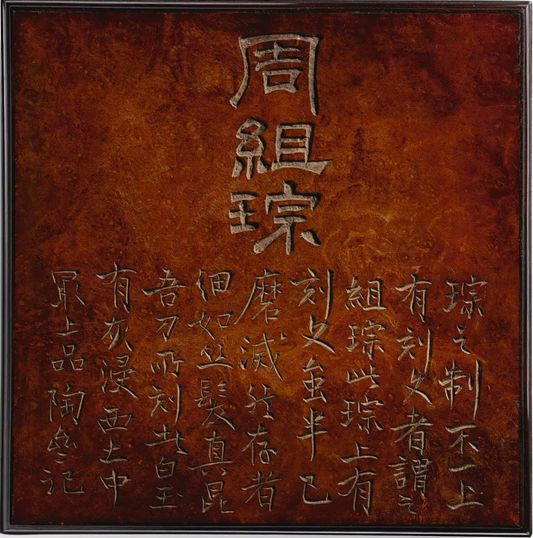 周組琮
琮之制不一上
有刻文者謂之
組琮此琮上有
刻文虽半已
磨滅然存者
細如丝髮真昆
吾刀所刻此白玉
有浸西土中
最上品陶齋记